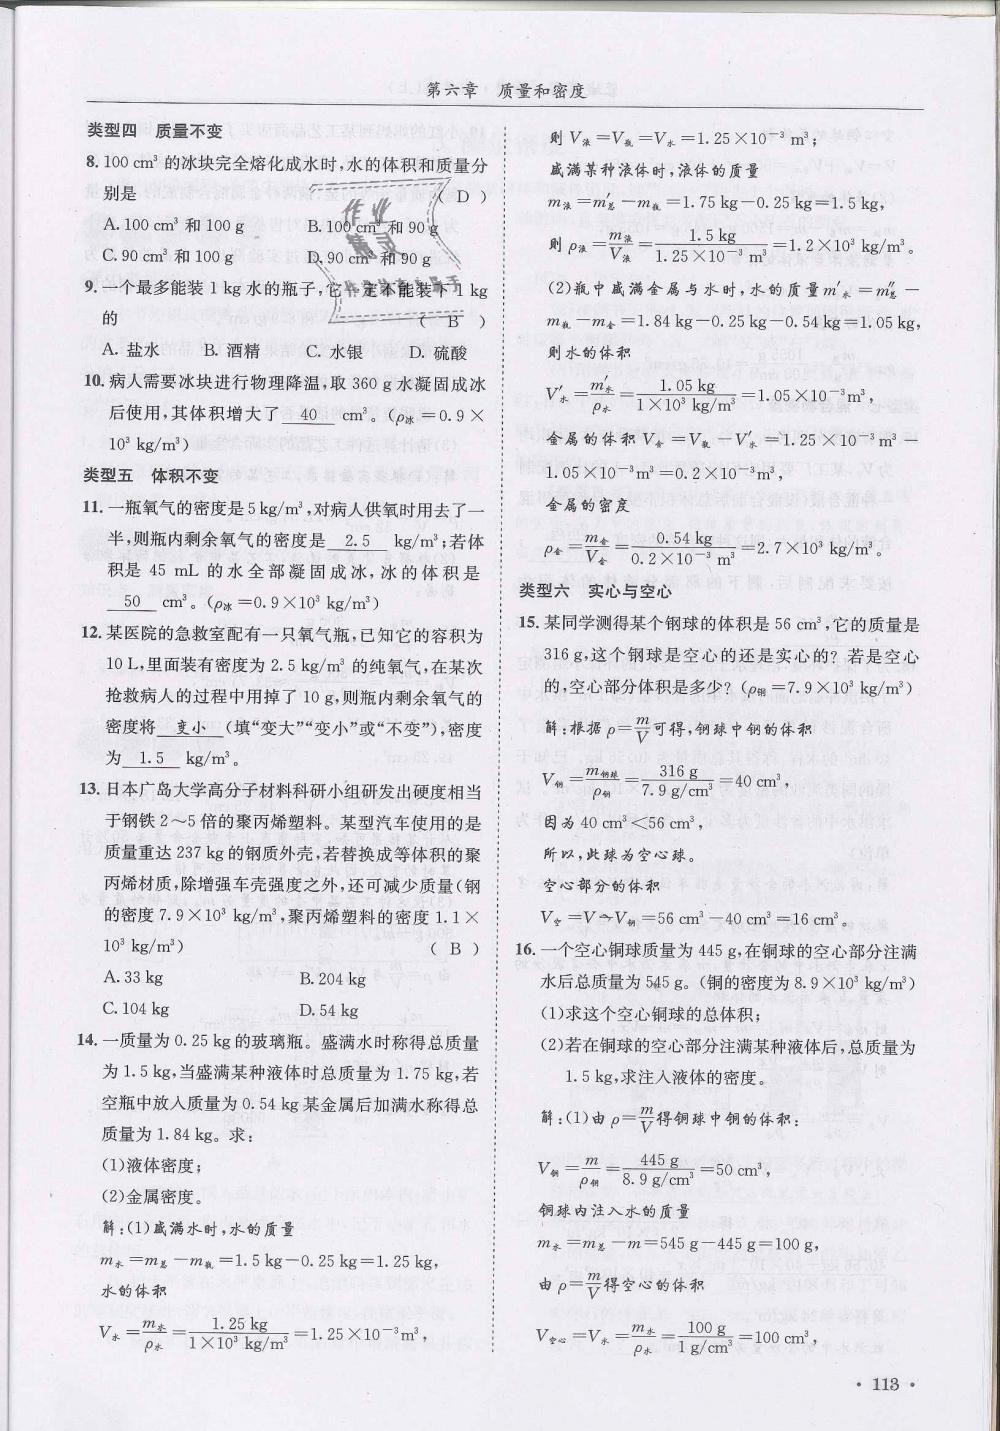 第六章 质量和密度
类型四 质量不变
8. 100 cm³ 的冰块完全熔化成水时,水的体积和质量分
别是 ( D )
A. 100 cm³ 和 100 g B. 100 cm³ 和 90 g
C. 90 cm³ 和 100 g D. 90 cm³ 和 90 g
作业
精灵
9. 一个最多能装 1 kg 水的瓶子,它一定不能装下 1 kg
的 ( B )
A. 盐水 B. 酒精 C. 水银 D. 硫酸
10. 病人需要冰块进行物理降温,取 360 g 水凝固成冰
后使用,其体积增大了 40 cm³。(ρ冰=0.9×
10³ kg/m³)
类型五 体积不变
11. 一瓶氧气的密度是 5 kg/m³,对病人供氧时用去了一
半,则瓶内剩余氧气的密度是 2.5 kg/m³;若体
积是 45 mL 的水全部凝固成冰,冰的体积是
50 cm³。(ρ冰=0.9×10³ kg/m³)
12. 某医院的急救室配有一只氧气瓶,已知它的容积为
10 L,里面装有密度为 2.5 kg/m³ 的纯氧气,在某次
抢救病人的过程中用掉了 10 g,则瓶内剩余氧气的
密度将 变小 (填“变大”“变小”或“不变”),密度
为 1.5 kg/m³。
13. 日本广岛大学高分子材料科研小组研发出硬度相当
于钢铁 2～5 倍的聚丙烯塑料。某型汽车使用的是
质量重达 237 kg 的钢质外壳,若替换成等体积的聚
丙烯材质,除增强车壳强度之外,还可减少质量(钢
的密度 7.9×10³ kg/m³,聚丙烯塑料的密度 1.1×
10³ kg/m³) ( B )
A. 33 kg B. 204 kg
C. 104 kg D. 54 kg
14. 一质量为 0.25 kg 的玻璃瓶。盛满水时称得总质量
为 1.5 kg,当盛满某种液体时总质量为 1.75 kg,若
空瓶中放入质量为 0.54 kg 某金属后加满水称得总
质量为 1.84 kg。求:
(1)液体密度;
(2)金属密度。
解:(1)盛满水时,水的质量
m水=m总-m瓶=1.5 kg-0.25 kg=1.25 kg,
水的体积
V水=m水/ρ水=1.25 kg/1×10³ kg/m³=1.25×10⁻³ m³,
则 V液=V瓶=V水=1.25×10⁻³ m³;
盛满某种液体时,液体的质量
m液=m总-m瓶=1.75 kg-0.25 kg=1.5 kg,
则 ρ液=m液/V液=1.5 kg/1.25×10⁻³ m³=1.2×10³ kg/m³。
(2)瓶中盛满金属与水时,水的质量 m′水=m″总-
m瓶-m金=1.84 kg-0.25 kg-0.54 kg=1.05 kg,
则水的体积
V′水=m′水/ρ水=1.05 kg/1×10³ kg/m³=1.05×10⁻³ m³,
金属的体积 V金=V瓶-V′水=1.25×10⁻³ m³-
1.05×10⁻³ m³=0.2×10⁻³ m³,
金属的密度
ρ金=m金/V金=0.54 kg/0.2×10⁻³ m³=2.7×10³ kg/m³。
类型六 实心与空心
15. 某同学测得某个钢球的体积是 56 cm³,它的质量是
316 g,这个钢球是空心的还是实心的? 若是空心
的,空心部分体积是多少? (ρ钢=7.9×10³ kg/m³)
解:根据 ρ=m/V可得,钢球中钢的体积
V钢=m钢球/ρ钢=316 g/7.9 g/cm³=40 cm³,
因为 40 cm³<56 cm³,
所以,此球为空心球。
空心部分的体积
V空=V-V钢=56 cm³-40 cm³=16 cm³。
16. 一个空心铜球质量为 445 g,在铜球的空心部分注满
水后总质量为 545 g。(铜的密度为 8.9×10³ kg/m³)
(1)求这个空心铜球的总体积;
(2)若在铜球的空心部分注满某种液体后,总质量为
1.5 kg,求注入液体的密度。
解:(1)由 ρ=m/V得铜球中铜的体积:
V铜=m/ρ铜=445 g/8.9 g/cm³=50 cm³,
铜球内注入水的质量
m水=m总-m=545 g-445 g=100 g,
由 ρ=m/V得空心的体积
V空心=V水=m水/ρ水=100 g/1 g/cm³=100 cm³,
· 113 ·